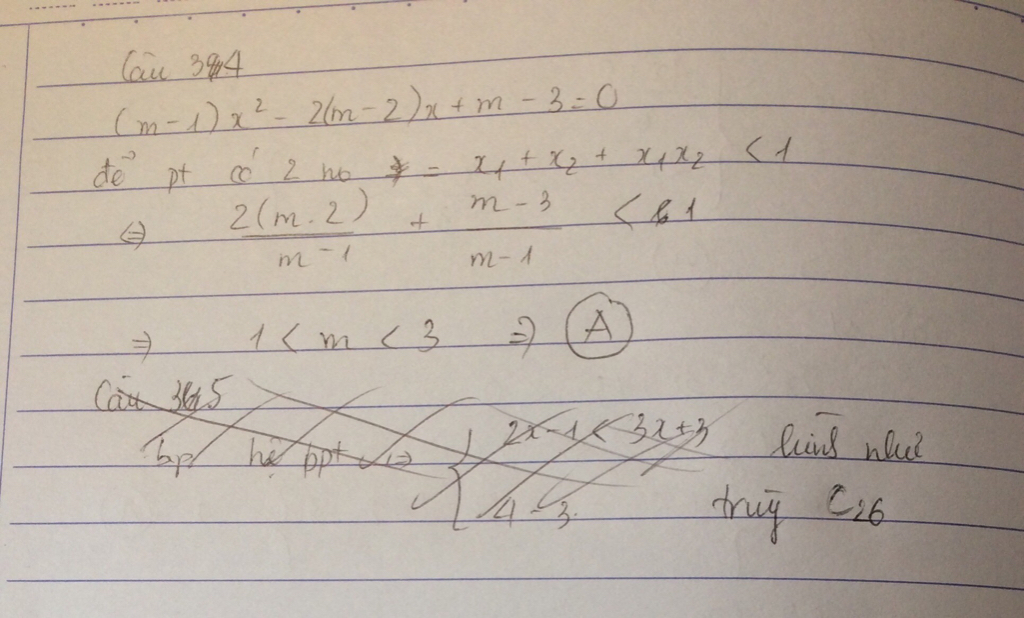 Câu 34
(m-1)x² - 2(m-2)x + m - 3 = 0
để pt có 2 no = x₁ + x₂ + x₁x₂ < 1
⇔ 2(m-2)/(m-1) + (m-3)/(m-1) < 1
⇒ 1 < m < 3 ⇒ A
Câu 35
hệ bpt ⇔ { 2x-1 < 3x+3
4-3
như
C26